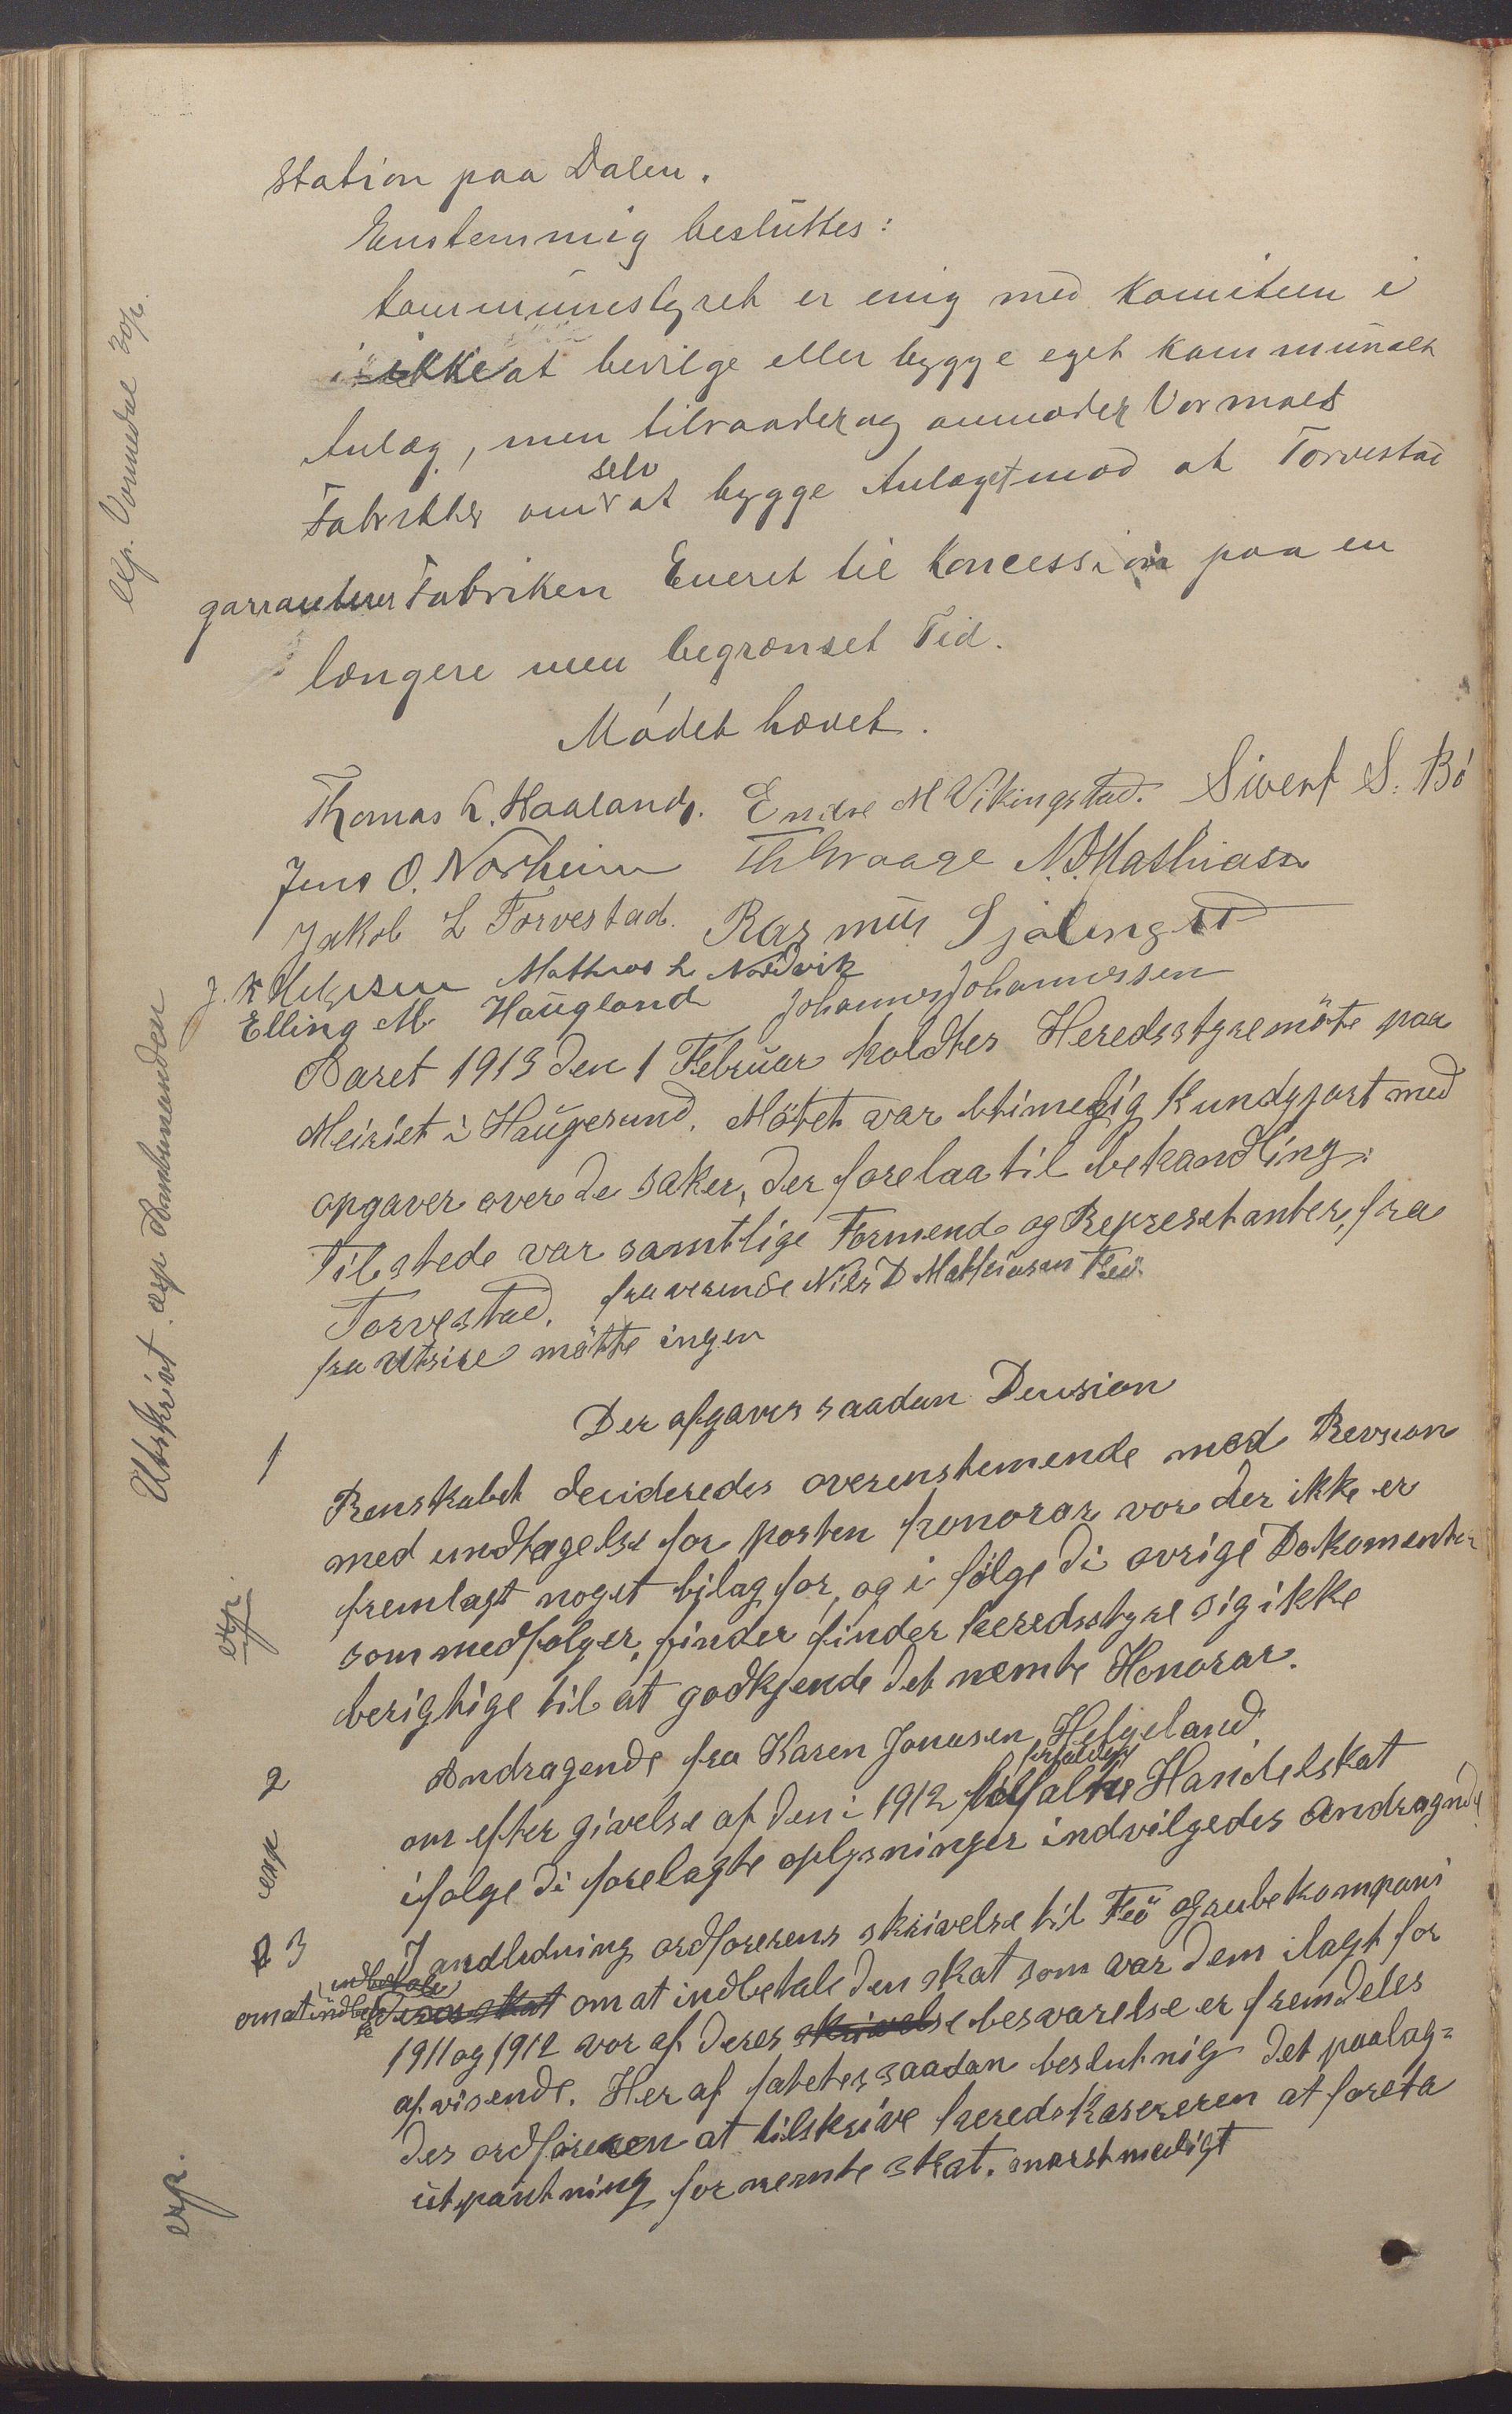 Station paa Dalen.
Enstemmig besluttes:
Kommunestyret er enig med Komiteen i
i ikke at bevilge eller bygge eget kommunalt
Anlæg, men tilraader og anmoder Vormals
selv
Fabrikker om at bygge Anlæget mod at Torvestad
garranterer Fabriken Eneret til Koncession paa en
længere men begrænset Tid.
Mødet hævet.
Thomas L. Haaland. Endre M Vikingstad. Sivert S. Bø
Jens O. Norheim Th Kraage N.D. Mathiasen
Jakob L Torvestad. Rasmus Sjølingst
J. K Helgesen Mathias L Nordvik
Elling M. Haugland Johannes Johannessen
Aaret 1913 den 1 Februar holdtes Heredsstyremöte paa
Meiriet i Haugesund. Mötet var betimelig kundgjort med
opgaver over de saker, der forelaa til behandling.
Tilstede var samtlige Formend og Represetanter, fra
Torvestad. fraverende Nils D Mathiasen Feö
fra Utsire mötte ingen
Der afgaves saadan Desision
1 Renskabet desideredes overenstemende med Revsion
med undtagelse for posten honorar vor der ikke er
fremlagt noget bilag for, og i følge di øvrige Dokomenter
som medfølger, finder finder heredsstyre sig ikke
berigtige til at godkjende det nemte Honorar.
2 Andragende fra Karen Jonasen Helgeland
forfaldne
om efter givelse af den i 1912 tilfalne Handelskat
ifølge di forelagte oplysninger indvilgedes Andragnde
3 I andledning ordførerens skrivelse til Feö Grubekompani
indbetale
om at indbetale Deres skat om at indbetale den skat som var dem ilagt for
1911 og 1912 vor af deres skrivelse besvarelse er fremdeles
afvisende. Her af fatetes saadan beslutnig det paalag=
des ordføreren at tilskrive heredskasereren at foreta
utpantning for nemte skat. snarst muligt
exp. Vormedal 30/6.
Utskrivt exp Amtmanden
exp.
exp
exp.